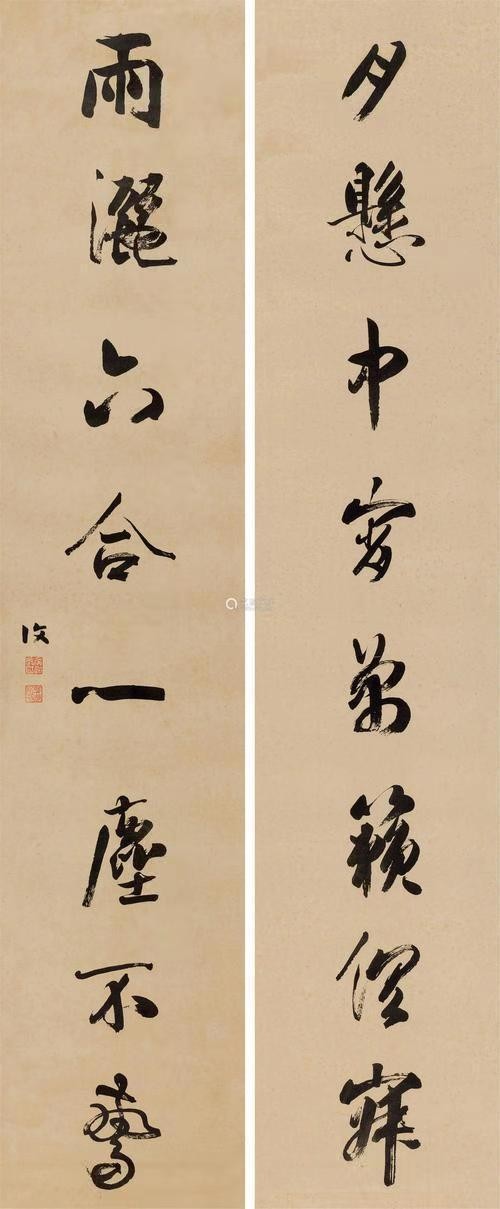 月懸中宵萬籟俱寂
雨灑六合一塵不驚